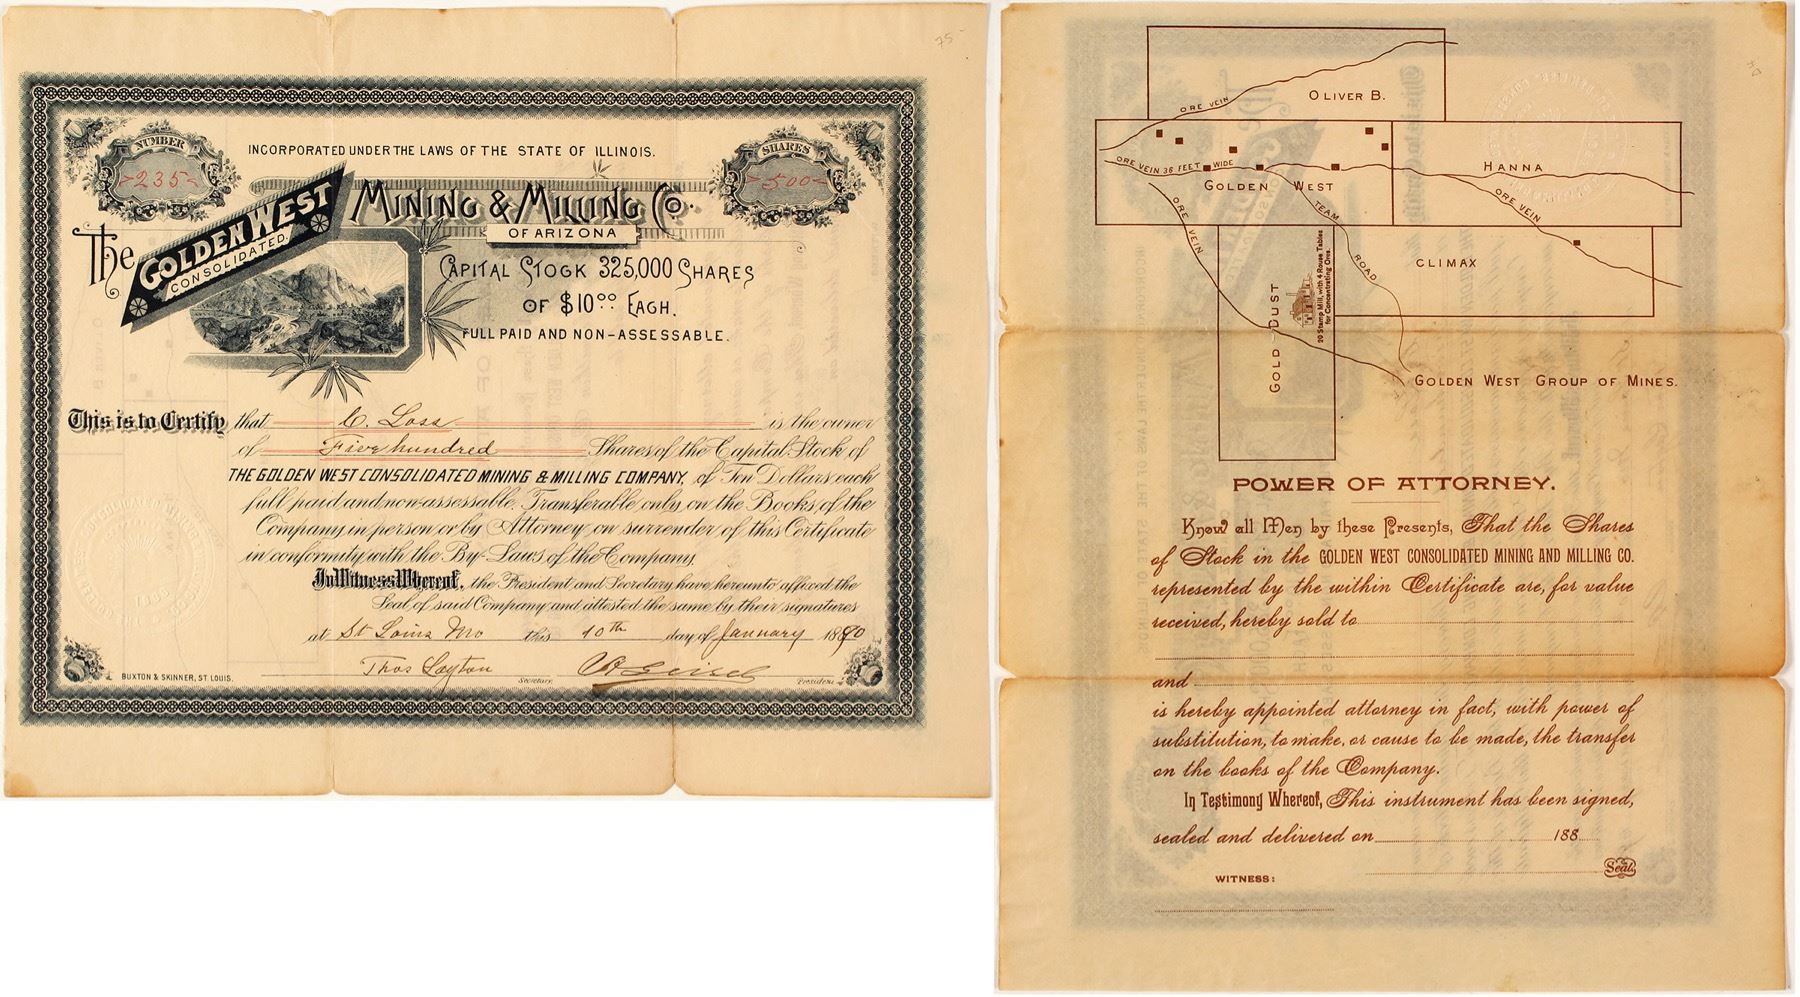 75-
INCORPORATED UNDER THE LAWS OF THE STATE OF ILLINOIS.
NUMBER
235
SHARES
500
The GOLDEN WEST CONSOLIDATED. MINING & MILLING CO.
OF ARIZONA
CAPITAL STOCK 325,000 SHARES
OF $10⁰⁰ EACH.
FULL PAID AND NON-ASSESSABLE.
This is to Certify that C. Loss is the owner
of Five hundred Shares of the Capital Stock of
THE GOLDEN WEST CONSOLIDATED MINING & MILLING COMPANY, of Ten Dollars each
full paid and non-assessable. Transferable only on the Books of the
Company in person or by Attorney on surrender of this Certificate
in conformity with the By-Laws of the Company.
In Witness Whereof, the President and Secretary have hereunto affixed the
Seal of said Company and attested the same by their signatures
at St Louis Mo this 10th day of January 1890
Thos Layton
Secretary.
President.
BUXTON & SKINNER, ST. LOUIS.
OLIVER B.
ORE VEIN
ORE VEIN 36 FEET WIDE
GOLDEN WEST
HANNA
ORE VEIN
ORE VEIN
TEAM ROAD
CLIMAX
GOLD DUST
20 Stamp Mill, with 4 Rouse Tables
for Concentrating Ores.
GOLDEN WEST GROUP OF MINES.
POWER OF ATTORNEY.
Know all Men by these Presents, That the Shares
of Stock in the GOLDEN WEST CONSOLIDATED MINING AND MILLING CO.
represented by the within Certificate are, for value
received, hereby sold to
and
is hereby appointed attorney in fact, with power of
substitution, to make, or cause to be made, the transfer
on the books of the Company.
In Testimony Whereof, This instrument has been signed,
sealed and delivered on 188
Seal
WITNESS: